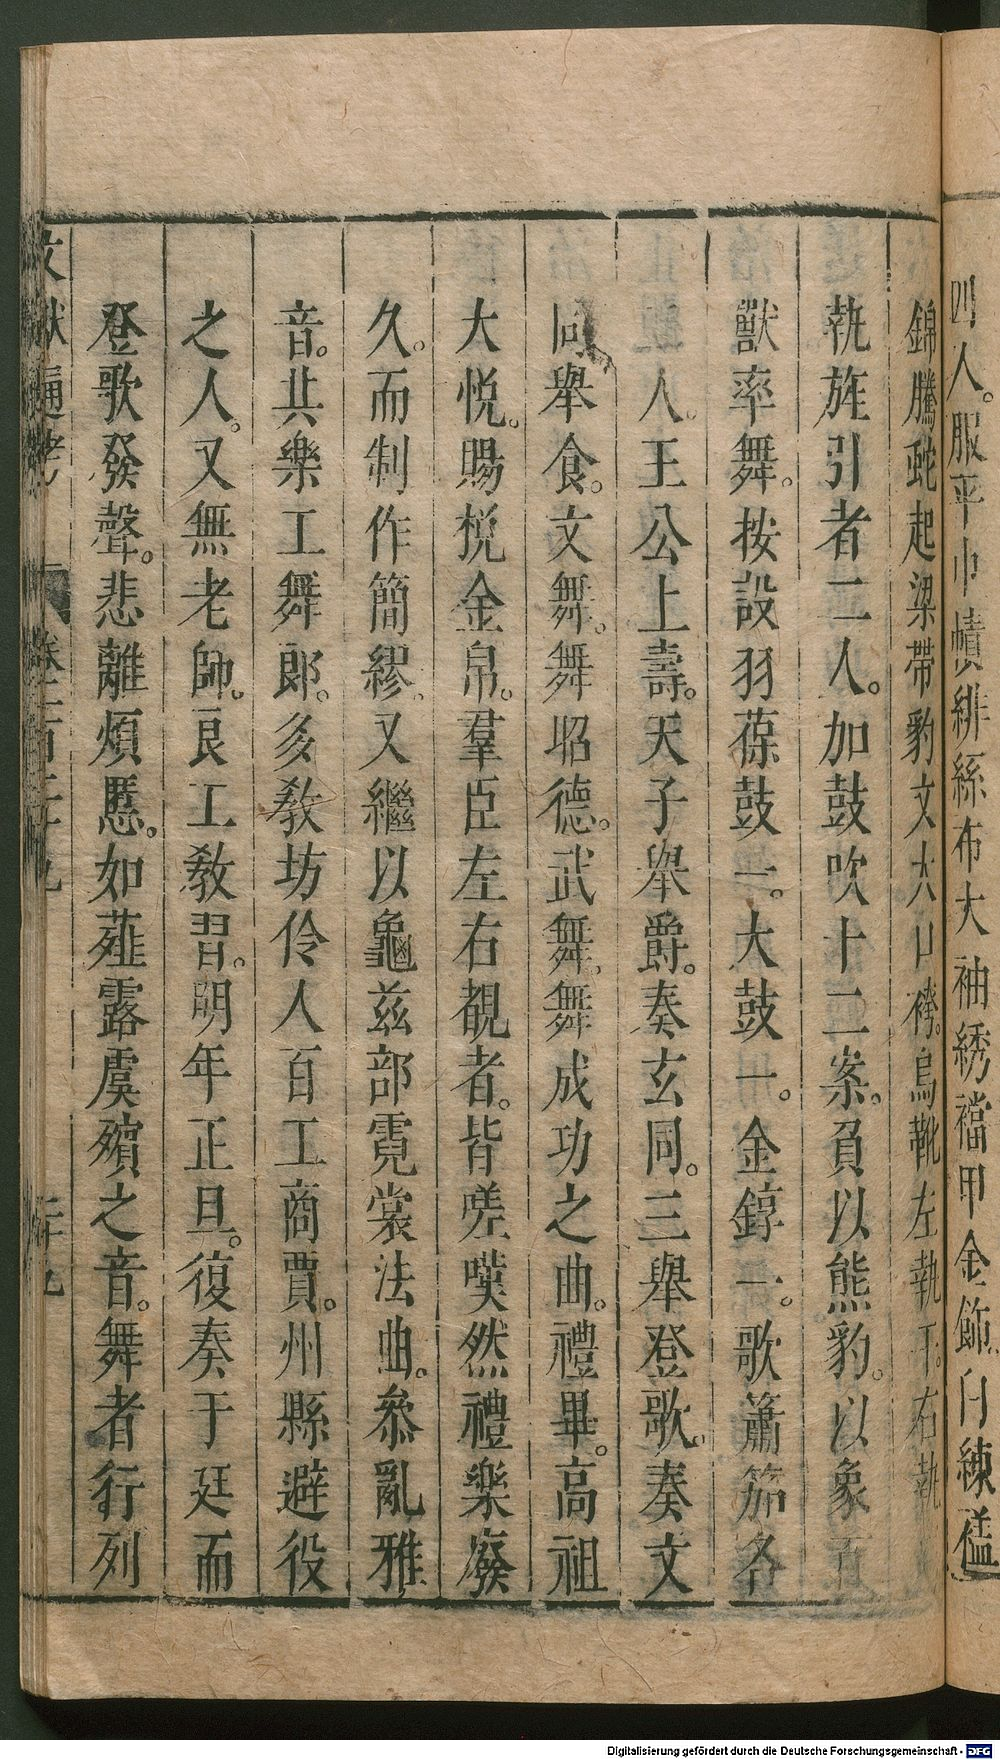 四人。服平巾幘緋絲布大袖綉襠甲金飾白練𧛾
錦騰蛇起梁帶豹文大口袴。烏靴左執干。右執
執旌引者二人。加鼓吹十二案。負以熊豹。以象百
獸率舞。按設羽葆鼓一。大鼓一。金錞一。歌簫笳各
二人。王公上壽。天子舉爵。奏玄同。三舉登歌。奏文
同舉食。文舞。舞昭德。武舞。舞成功之曲。禮畢。高祖
大悅。賜梲金帛。羣臣左右覩者。皆嗟嘆然禮樂廢
久。而制作簡繆。又繼以龜兹部霓裳法曲。叅亂雅
音。其樂工舞郎。多教坊伶人百工商賈。州縣避役
之人。又無老師。良工教習。明年正旦。復奏于廷而
登歌發聲。悲離煩慝。如薤露虞殯之音。舞者行列
文獻通考 卷一百二十九 二十九
Digitalisierung gefördert durch die Deutsche Forschungsgemeinschaft - DFG